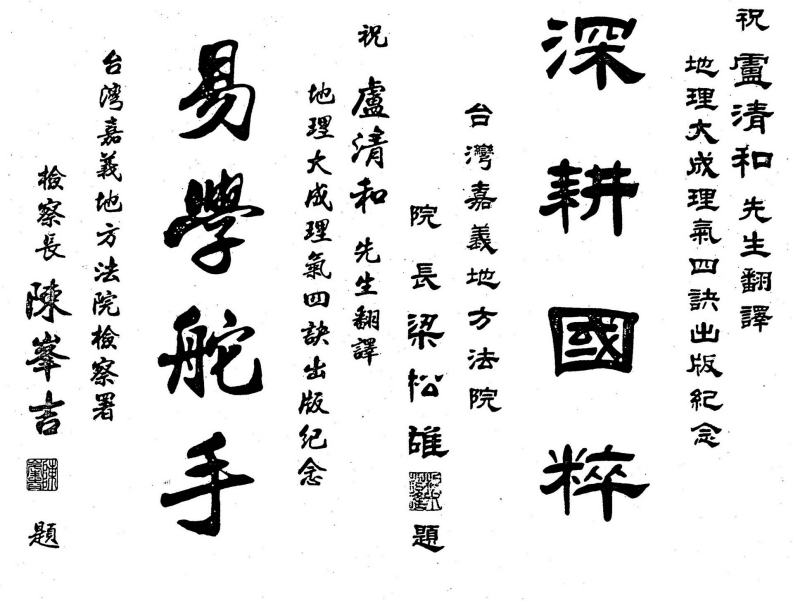 祝 盧清和 先生翻譯
地理大成理氣四訣出版紀念
深耕國粹
台灣嘉義地方法院
院長 梁松雄 題
祝 盧清和 先生翻譯
地理大成理氣四訣出版紀念
易學舵手
台灣嘉義地方法院檢察署
檢察長 陳峯吉 題